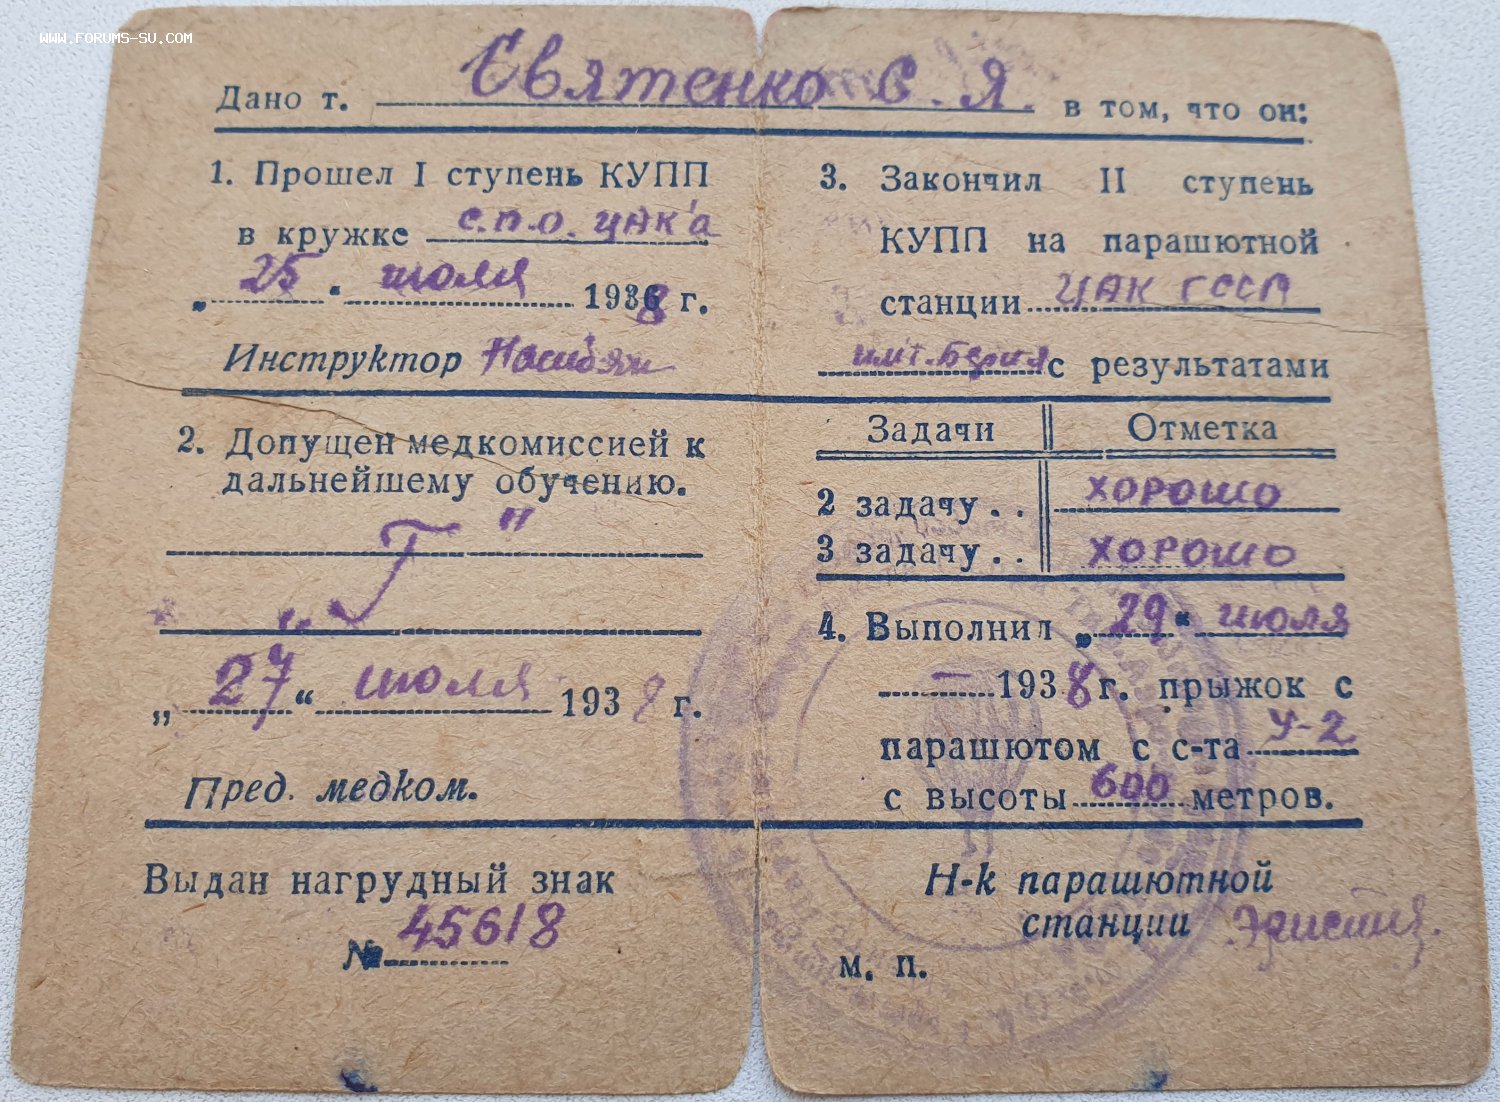 WWW.FORUMS-SU.COM
Дано т. Святенко С. Я. в том, что он:
1. Прошел I ступень КУПП
в кружке С.П.О. ЦАК'а
„25" июля 1938 г.
Инструктор
2. Допущен медкомиссией к
дальнейшему обучению.
„Г"
„27" июля 1938 г.
Пред. медком.
Выдан нагрудный знак
№ 45618
3. Закончил II ступень
КУПП на парашютной
станции ЦАК ГССР
им т. Берия с результатами
Задачи Отметка
2 задачу . . ХОРОШО
3 задачу . . ХОРОШО
4. Выполнил „29" июля
— 1938 г. прыжок с
парашютом с с-та У-2
с высоты 600 метров.
Н-к парашютной
станции
м. п.